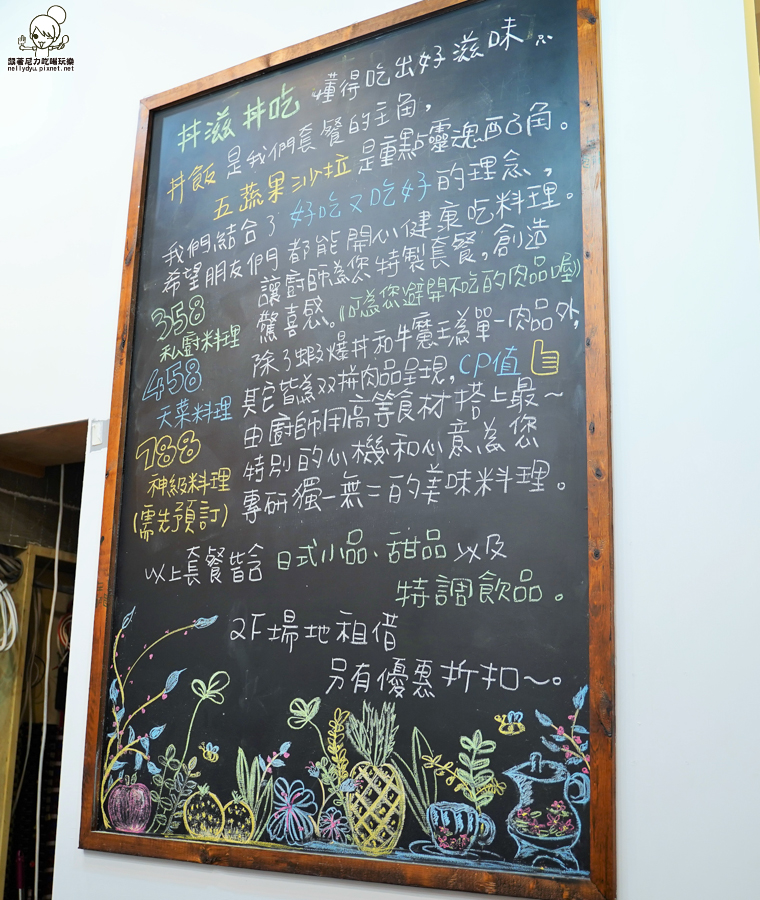 跟著尼力吃喝玩樂
nellydyu.pixnet.net
丼滋丼吃 懂得吃出好滋味
丼飯 是我們套餐的主角,
五蔬果沙拉 是重點靈魂配角。
我們結合了 好吃又吃好 的理念,
希望朋友們都能開心健康吃料理。
358
私廚料理
讓廚師為您特製套餐,創造
驚喜感。(可為您避開不吃的肉品喔)
458
天菜料理
除了蝦爆丼和牛魔王為單一肉品外,
其它皆為双拼肉品呈現, CP值
788
神級料理
(需先預訂)
由廚師用高等食材搭上最~
特別的心機和心意為您
專研獨一無二的美味料理。
以上套餐皆含 日式小品、甜品 以及
特調飲品。
2F場地租借
另有優惠折扣~。